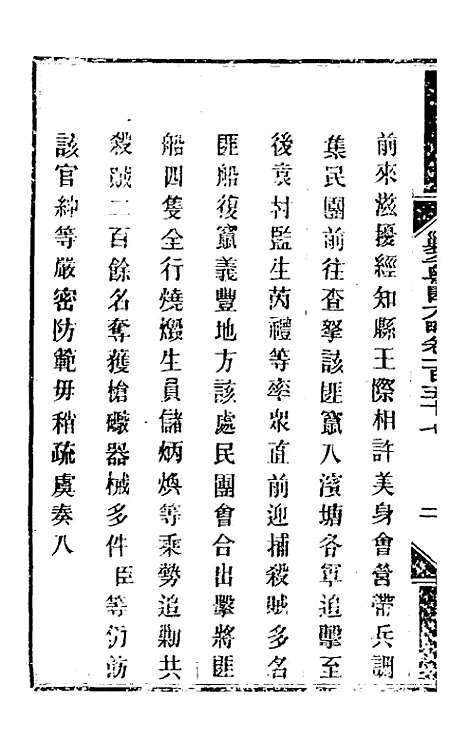 前來滋擾經知縣王際相許美身會營帶兵調
集民團前往查拏該匪竄入濱塘各軍追擊至
後袁村監生芮禮等率眾直前迎捕殺賊多名
匪船復竄義豐地方該處民團會合出擊將匪
船四隻全行燒燬生員儲炳煥等乘勢追勦共
殺賊二百餘名奪獲槍礮器械多件臣等仍飭
該官紳等嚴密防範毋稍疏虞奏入
方略卷一百五十七
二